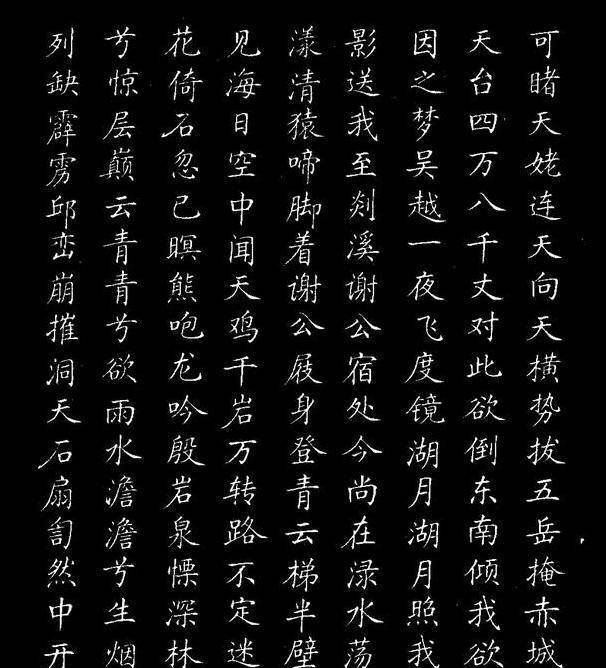 可睹天姥连天向天横势拔五岳掩赤城
天台四万八千丈对此欲倒东南倾我欲
因之梦吴越一夜飞度镜湖月湖月照我
影送我至剡溪谢公宿处今尚在渌水荡
漾清猿啼脚着谢公屐身登青云梯半壁
见海日空中闻天鸡千岩万转路不定迷
花倚石忽已暝熊咆龙吟殷岩泉慄深林
兮惊层巅云青青兮欲雨水澹澹兮生烟
列缺霹雳邱峦崩摧洞天石扇訇然中开